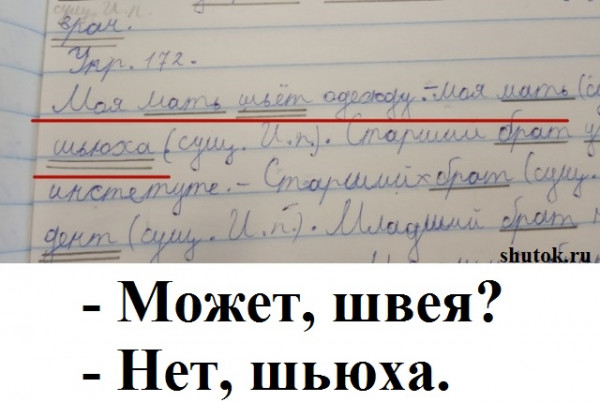 врач.
Упр. 172.
Моя мать шьёт одежду. - Моя мать (
шьюха (сущ. И.п.). Старший брат у
инстетуте. - Старший брат (сущ.
дент (сущ. И.п.). Младший брат
shutok.ru
- Может, швея?
- Нет, шьюха.